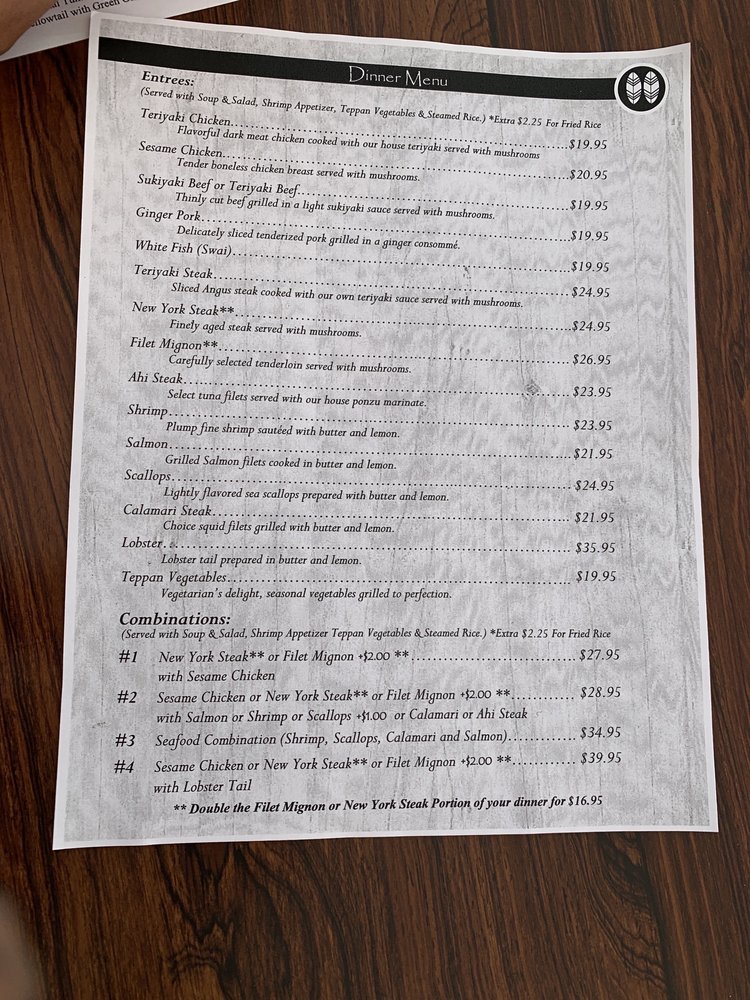 with Green
Dinner Menu
Entrees:
(Served with Soup & Salad, Shrimp Appetizer, Teppan Vegetables & Steamed Rice.) *Extra $2.25 For Fried Rice
Teriyaki Chicken..........$19.95
Flavorful dark meat chicken cooked with our house teriyaki served with mushrooms
Sesame Chicken..........$20.95
Tender boneless chicken breast served with mushrooms.
Sukiyaki Beef or Teriyaki Beef..........$19.95
Thinly cut beef grilled in a light sukiyaki sauce served with mushrooms.
Ginger Pork..........$19.95
Delicately sliced tenderized pork grilled in a ginger consommé.
White Fish (Swai)..........$19.95
Teriyaki Steak..........$24.95
Sliced Angus steak cooked with our own teriyaki sauce served with mushrooms.
New York Steak**..........$24.95
Finely aged steak served with mushrooms.
Filet Mignon**..........$26.95
Carefully selected tenderloin served with mushrooms.
Ahi Steak..........$23.95
Select tuna filets served with our house ponzu marinate.
Shrimp..........$23.95
Plump fine shrimp sautéed with butter and lemon.
Salmon..........$21.95
Grilled Salmon filets cooked in butter and lemon.
Scallops..........$24.95
Lightly flavored sea scallops prepared with butter and lemon.
Calamari Steak..........$21.95
Choice squid filets grilled with butter and lemon.
Lobster..........$35.95
Lobster tail prepared in butter and lemon.
Teppan Vegetables..........$19.95
Vegetarian's delight, seasonal vegetables grilled to perfection.
Combinations:
(Served with Soup & Salad, Shrimp Appetizer Teppan Vegetables & Steamed Rice.) *Extra $2.25 For Fried Rice
#1 New York Steak** or Filet Mignon +$2.00 **..........$27.95
with Sesame Chicken
#2 Sesame Chicken or New York Steak** or Filet Mignon +$2.00 **..........$28.95
with Salmon or Shrimp or Scallops +$1.00 or Calamari or Ahi Steak
#3 Seafood Combination (Shrimp, Scallops, Calamari and Salmon)..........$34.95
#4 Sesame Chicken or New York Steak** or Filet Mignon +$2.00 **..........$39.95
with Lobster Tail
** Double the Filet Mignon or New York Steak Portion of your dinner for $16.95